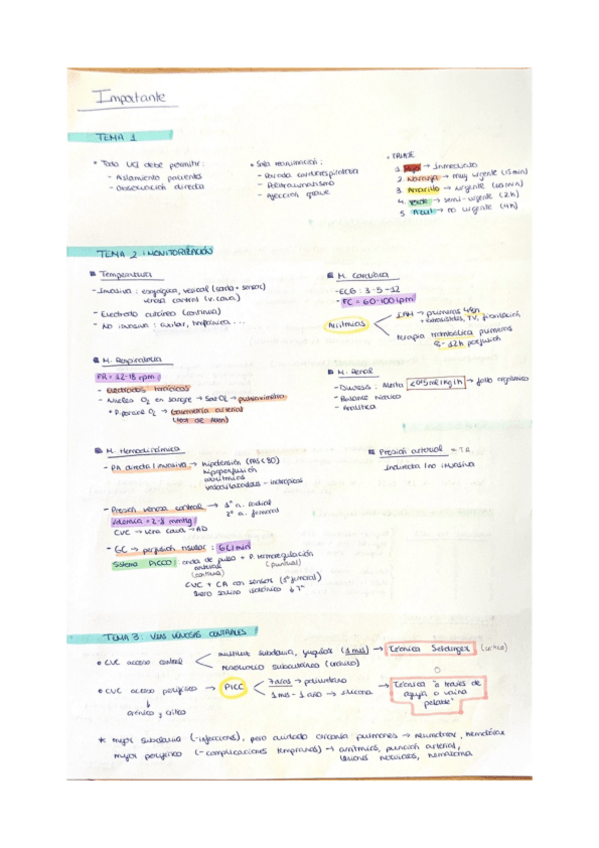 Importante
TEMA 1
• Toda UCI debe permitir:
- Aislamiento pacientes
- Observación directa
• Sala reanimación:
- Parada cardiorrespiratoria
- Politraumatismo
- Agresión grave
• TRIAJE
1. Rojo → inmediato
2. Naranja → muy urgente (15min)
3. Amarillo → urgente (60min)
4. Verde → semi-urgente (2h)
5. Azul → no urgente (4h)
TEMA 2: MONITORIZACIÓN
Temperatura
- Invasiva: esofágica, vesical (sonda + sensor)
venosa central (v. cava)
- Electrodo cutáneo (continua)
- No invasiva: axilar, timpánica...
M. Cardíaca
- ECG: 3-5-12
- FC = 60-100 lpm
Arritmias
IAM → primeras 48h
TV, fibrilación
terapia trombolítica primeras
8-12h
M. Respiratoria
FR = 12-18 rpm
- Electrodos torácicos
- Niveles O2 en sangre → Sat O2 → pulsioxímetro
* P. parcial O2 → Gasometría arterial
(test de Allen)
M. Renal
- Diuresis: Alerta <0'5ml/kg/h → fallo orgánico
- Balance hídrico
- Analítica
M. Hemodinámica
- PA directa/invasiva → hipotensión (PAS<80)
hipoperfusión
arritmias
vasodilatadores - inotrópicos
Presión arterial = TA
Indirecta/no invasiva
- Presión venosa central → 1º a. radial
2º a. femoral
= 2-8 mmHg
CVC → vena cava → AD
- GC → perfusión tisular: 6L/min
Sistema PICCO: onda de pulso + P. termorregulación
arterial (puntual)
(continua)
CVC + CA con sensor (1º femoral)
Suero salino isotónico ↓Tª
TEMA 3: VÍAS VENOSAS CENTRALES
• CVC acceso central
subclavia, yugular (1 mes) → Técnica Seldinger (crítico)
reservorio subcutáneo (crónico)
o
• CVC acceso periférico → PICC
7 días → poliuretano
1 mes - 1 año → silicona → Técnica "a través de
aguja o vaina
pelable"
crónico y crítico
* mejor subclavia (-infecciones), pero cuidado cercanía pulmones → neumotórax, hemotórax
mejor periférico (-complicaciones tempranas) → arritmias, punción arterial,
lesiones nerviosas, hematoma